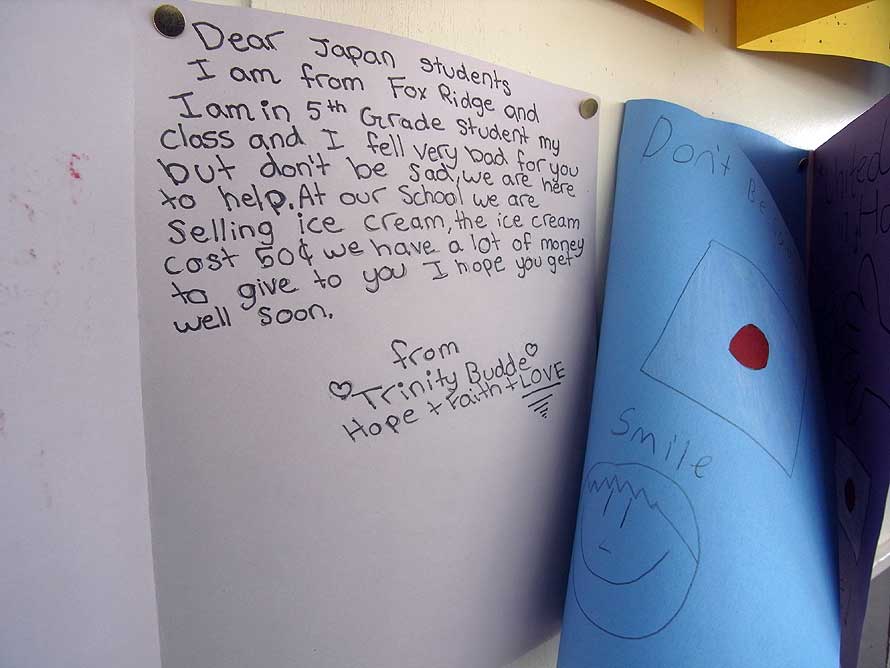 Dear Japan students
I am from Fox Ridge and
I am in 5th Grade student my
class and I fell very bad for you
but don't be sad, we are here
to help. At our School we are
Selling ice cream, the ice cream
cost 50¢ we have a lot of money
to give to you I hope you get
well soon.
from
♡Trinity Budde♡
Hope + Faith + LOVE
Don't Be
Smile
United